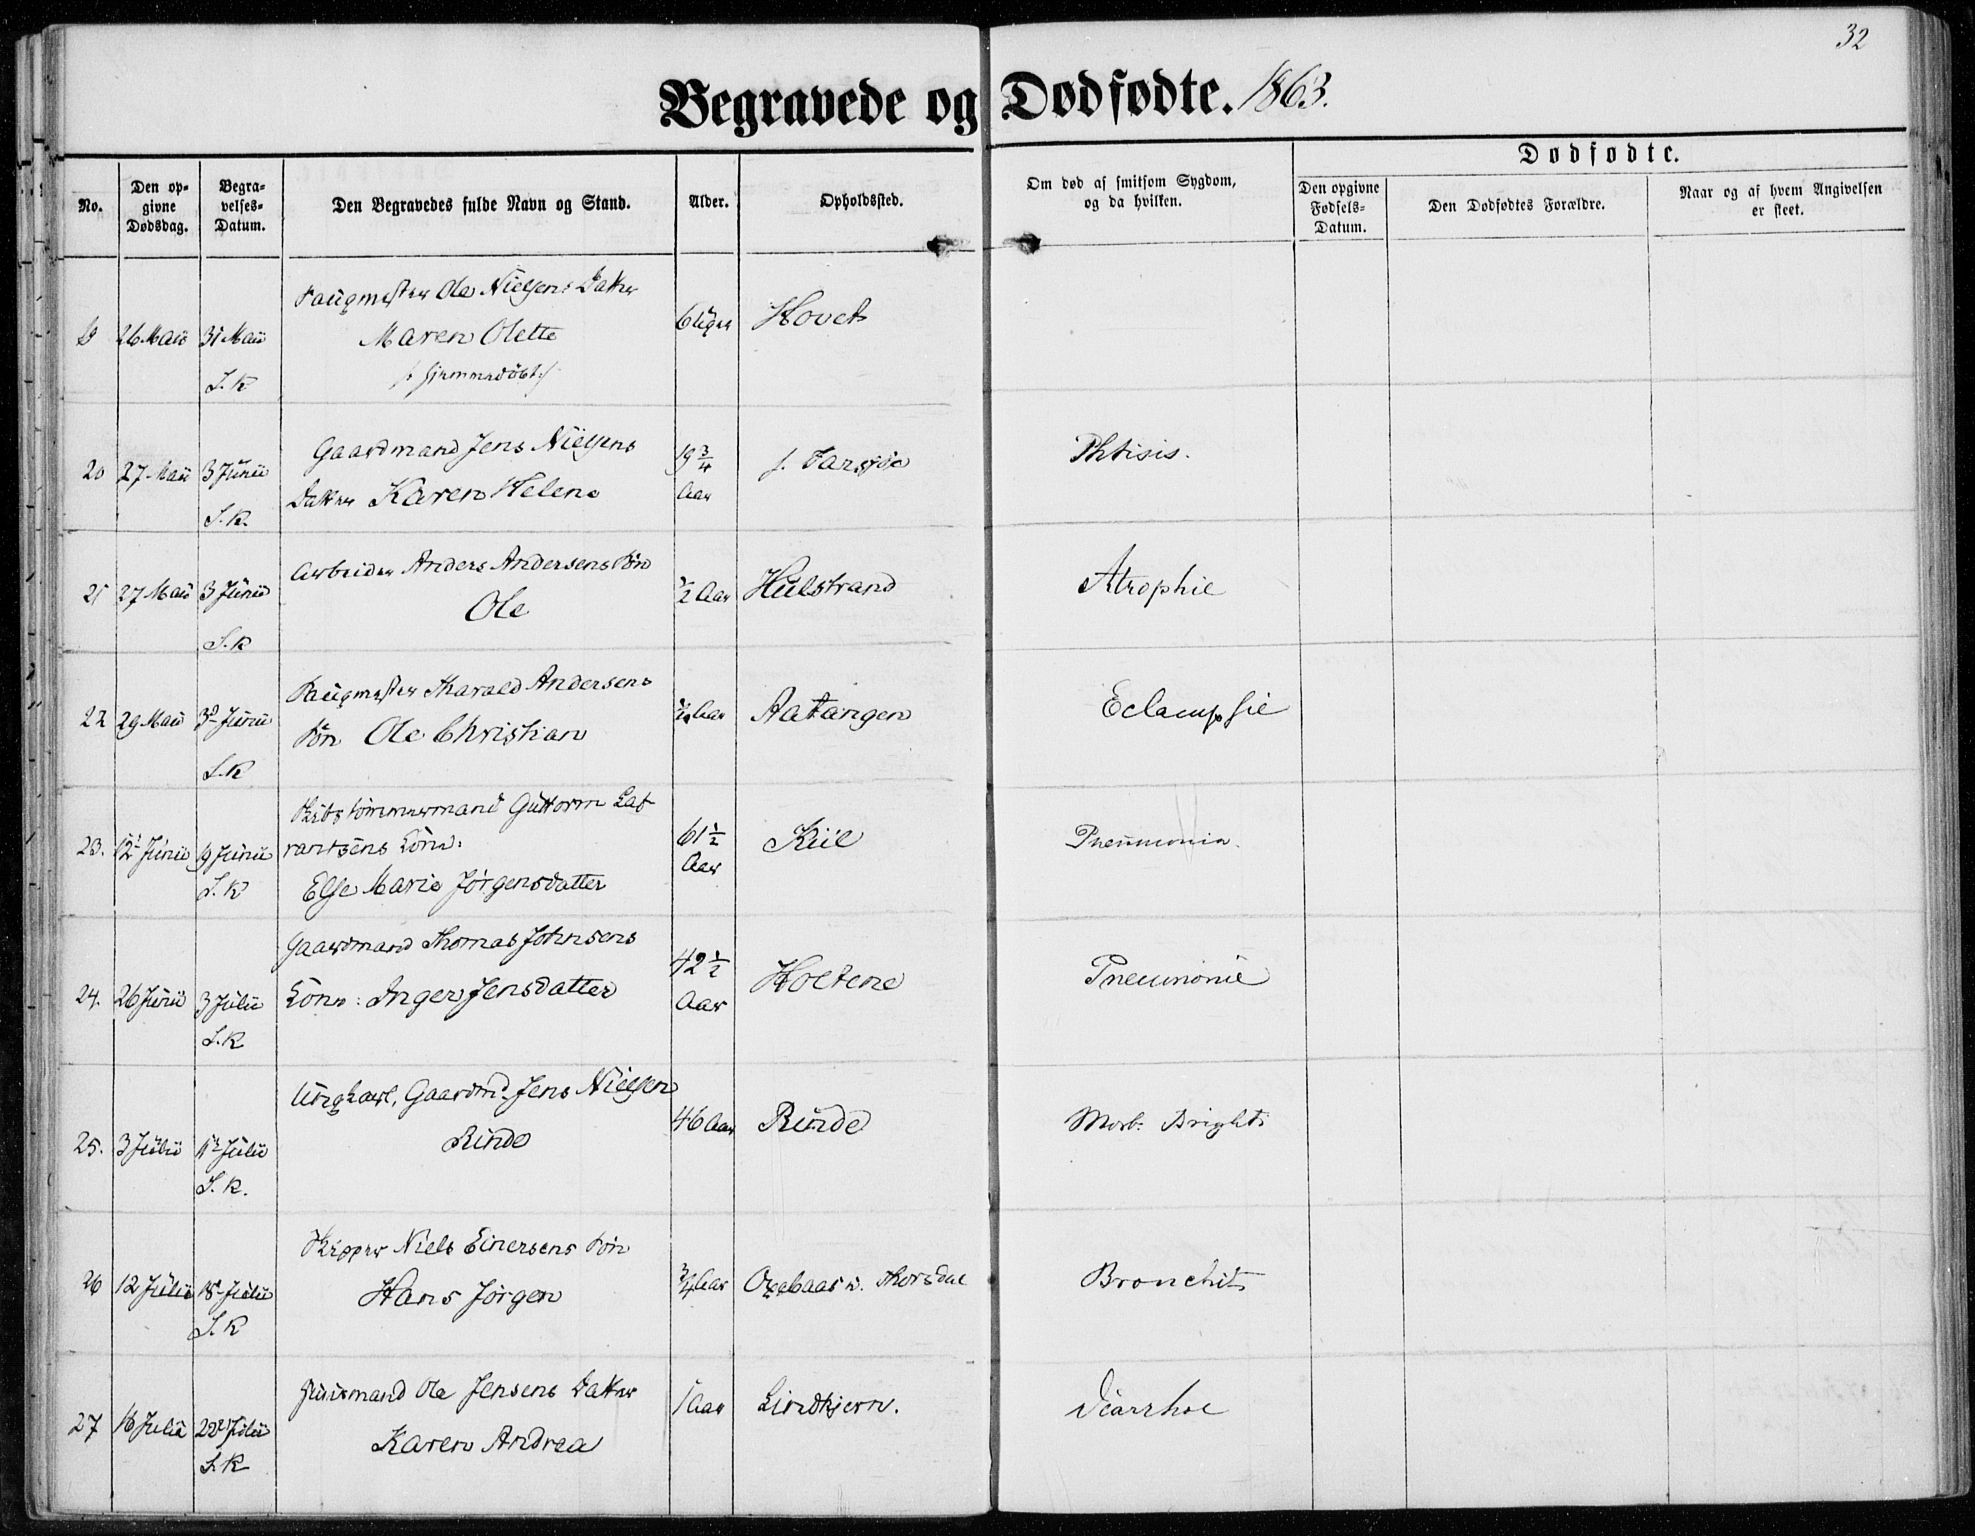 32
Begravede og Dødfødte. 1863.
No.
Den op-
givne
Dødsdag.
Begra-
velses-
Datum.
Den Begravedes fulde Navn og Stand.
Alder.
Opholdssted.
Om død af smitsom Sygdom,
og da hvilken.
Dødfødte.
Den opgivne
Fødsels-
Datum.
Den Dødfødtes Forældre.
Naar og af hvem Angivelsen
er skeet.
19 26 Maii 31 Maii
S. K
Laugmester Ole Nielsens Datter
Maren Olette
/: hjemmedøbt :/
6 Uger Hovet
20 27 Maii 3 Junii
S. K.
Gaardmand Jens Nielsens
Datter Karen Helene
19 3/4
Aar
Phtisis.
21 27 Maii 3 Junii
S. K
Arbeider Anders Andersens Søn
Ole
1/2 Aar Hulstrand Atrophie
22 29 Maii 3 Junii
S. K
Laugmester Harald Andersens
Søn Ole Christian
Aar Aatangen Eclampsie
23. 12 Junii 19 Junii
S. K
Skibstømmermand Guttorm Lav
rantsens Kone:
Else Marie Jørgensdatter
61 1/2
Aar
Kiil Pneumonia.
24. 26 Junii 3 Julii
S. K
Gaardmand Thomas Johnsens
Kone: Inger Jensdatter
42 1/2
Aar
Holtene Pneumonie
25. 3 Julii 11 Julii
S. K.
Ungkarl, Gaardmd Jens Nielsen
Rinde
46 Aar Rinde Morb: Brighti
26 12 Julii 18 Julii
S. K
Skipper Niels Einersens Søn
Hans Jørgen
3/4 Aar Oxebaas v. Thorsdal Bronchit
27 16 Julii 22 Julii
S. K
Huusmand Ole Jensens Datter
Karen Andrea
1 Aar Lindhjem. Diarrhoe